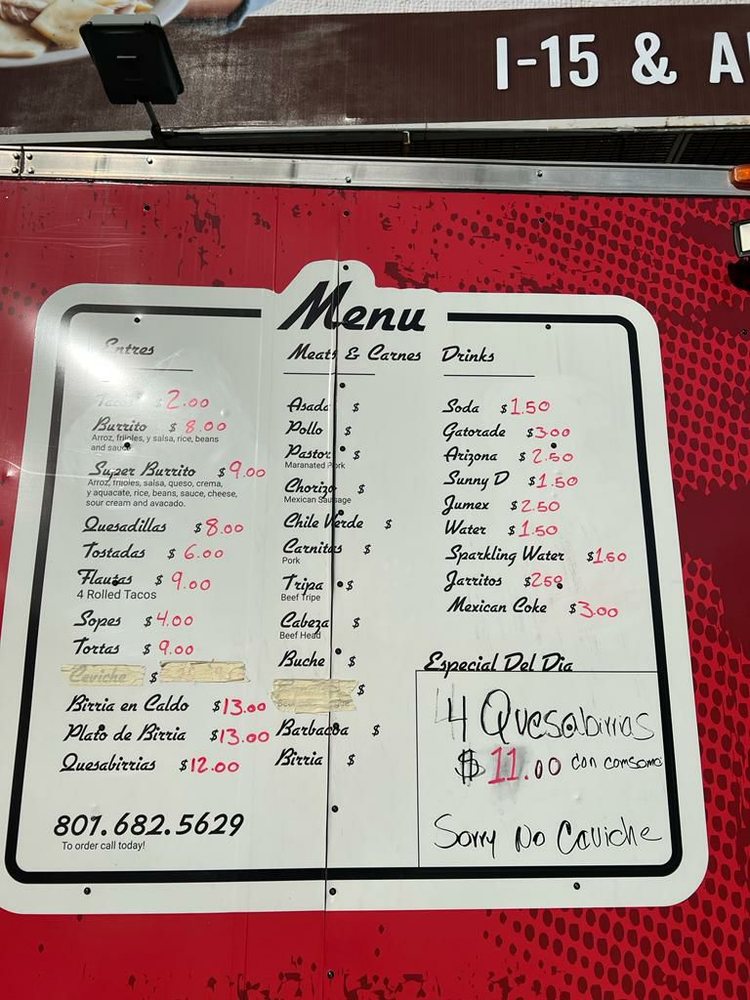 I-15 & A
Menu
Entres
Tacos $2.00
Burrito $8.00
Arroz, frijoles, y salsa, rice, beans
and sauce
Super Burrito $9.00
Arroz, frijoles, salsa, queso, crema,
y aquacate, rice, beans, sauce, cheese,
sour cream and avacado.
Quesadillas $8.00
Tostadas $6.00
Flautas $9.00
4 Rolled Tacos
Sopes $4.00
Tortas $9.00
Ceviche $
Birria en Caldo $13.00
Plato de Birria $13.00
Quesabirrias $12.00
801.682.5629
To order call today!
Meats & Carnes
Asada $
Pollo $
Pastor $
Maranated Pork
Chorizo $
Mexican Sausage
Chile Verde $
Carnitas $
Pork
Tripa $
Beef Tripe
Cabeza $
Beef Head
Buche $
$
Barbacoa $
Birria $
Drinks
Soda $1.50
Gatorade $3.00
Arizona $2.50
Sunny D $1.50
Jumex $2.50
Water $1.50
Sparkling Water $1.50
Jarritos $2.50
Mexican Coke $3.00
Especial Del Dia
4 Quesabirrias
$11.00 con comsome
Sorry No Caviche